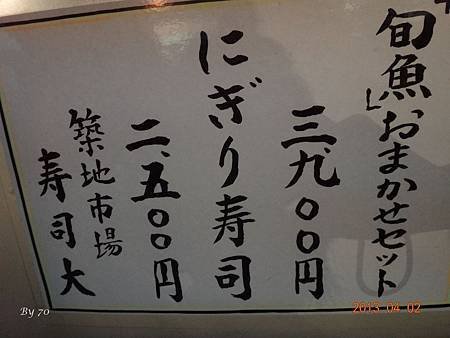 旬魚おまかせセット
三、九〇〇円
にぎり寿司
二、五〇〇円
築地市場
寿司大
By 70
2013 04 02